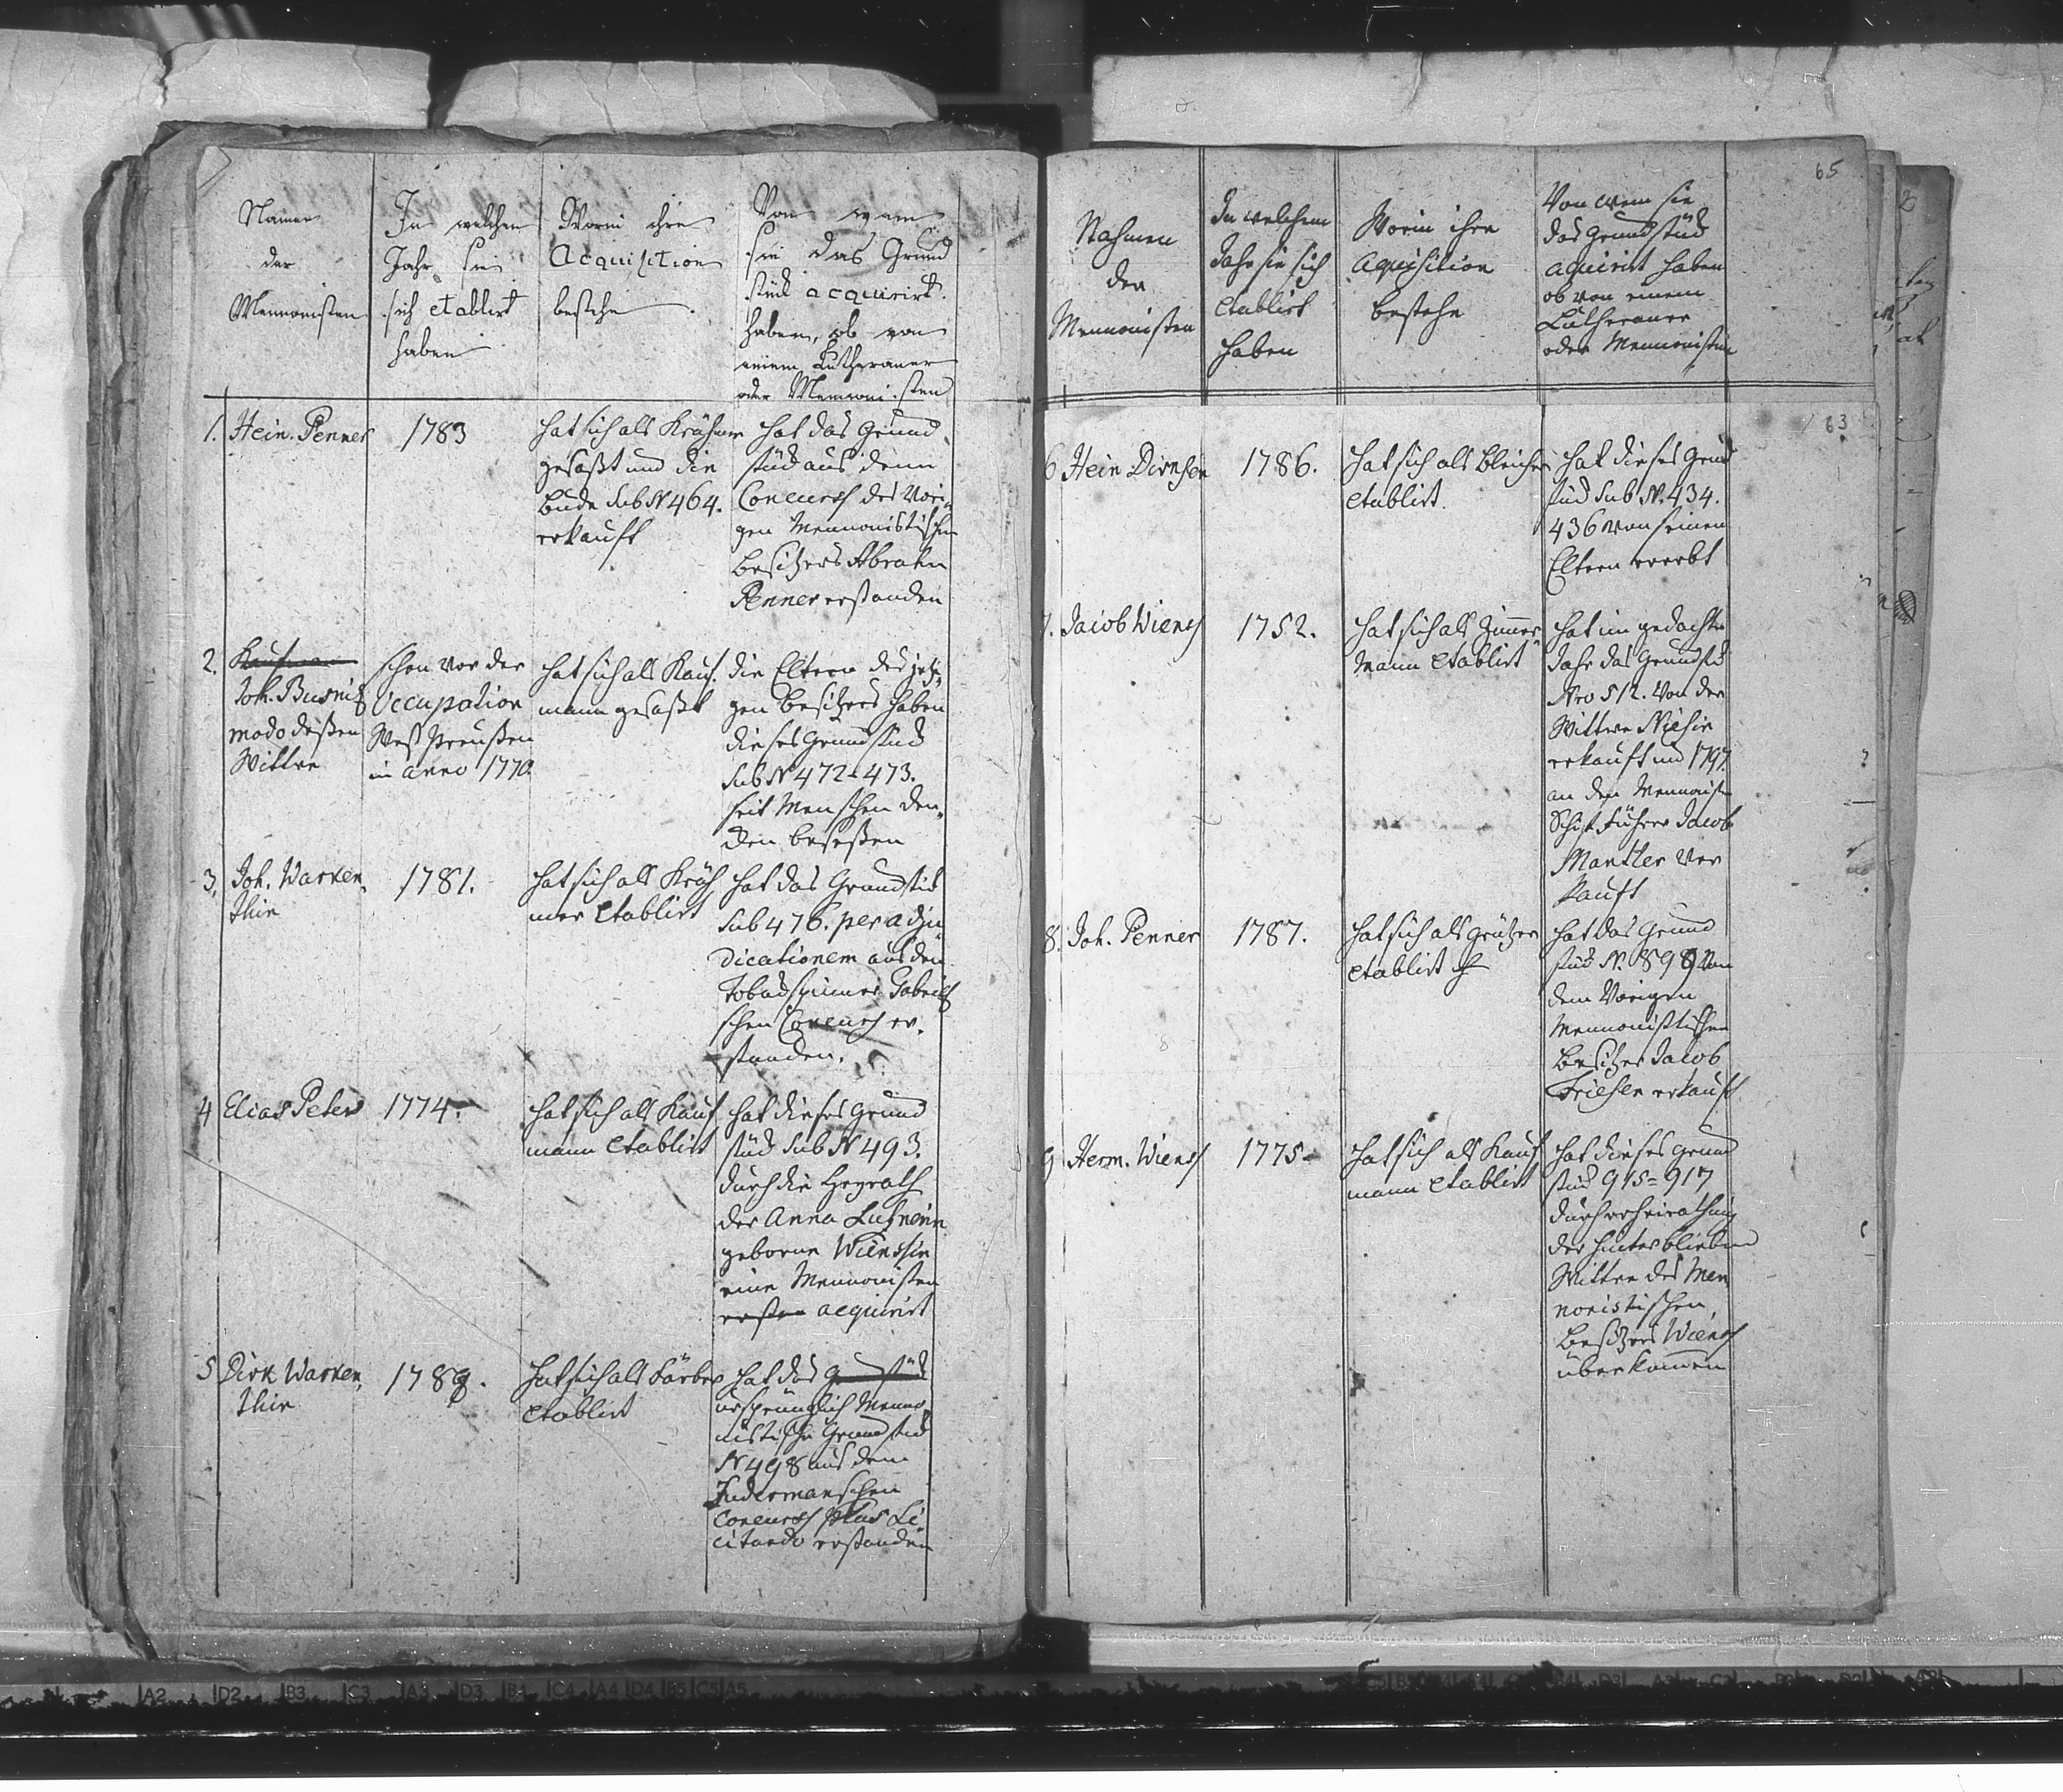 Namen
der
Mennonisten
In welchen
Jahr sie
sich etablirt
haben
Worin ihre
Acquisition
bestehe
Von wem
sie das Grund
stück acquirirt
haben, ob von
einem Lutheraner
oder Mennonisten
1. Hein. Penner
1783
hat sich als Krähmer
gesetzt und die
Bude sub N 464.
erkauft
hat das Grund
stück aus dem
Concurs des Vori-
gen Mennonistischen
Besitzers Abrahm
Penner erstanden
2. Kaufmann
Joh. Busnitz
modo deßen
Wittwe
schon vor der
Occupation
West Preußen
in anno 1770.
hat sich als Kauf-
mann gesetzt
die Eltern des jetzi-
gen Besitzers haben
dieses Grundstück
sub N 472-473.
seit Menschen den-
ken beseßen
3. Joh. Warken-
thin
1781.
hat sich als Kräh
mer etablirt
hat das Grundstück
sub 476. per adju-
dicationem aus den
Tobackspinner
schen Concurs er-
standen.
4 Elias Peters
1774.
hat sich als Kauf
mann etablirt
hat dieses Grund
stück sub N 493.
durch die Heyrath
der Anna
geborne Wienssin
eine Mennonisten
acquirirt
5 Dirk Warken-
thin
178
hat sich als Färber
etablirt
hat das Grundstück
ursprünglich Menno-
nistische Grundstück
N 498 aus dem
schen
Concurs plus Li-
citando erstanden
65
Nahmen
der
Mennonisten
In welchem
Jahr sie sich
etablirt
haben
Worin ihre
Aquisition
bestehe
Von wem sie
das Grundstück
aquirirt haben
ob von einem
Lutheraner
oder Mennonisten
63
6 Hein Dirksen
1786.
hat sich als Bleicher
etablirt.
hat dieses Grund
stück sub N. 434.
436 von seinen
Eltern ererbt
7. Jacob Wiens
1752.
hat sich als Zimmer-
mann etablirt
hat im gedachten
Jahr das Grundstück
Nro 512. von der
Wittwe
erkauft und 1797.
an den Mennonisten
Schif Führer Jacob
Mantler ver
kauft
8. Joh. Penner
1787.
hat sich als Grützer
etablirt
hat das Grund
stück N. 898 von
dem Vorigen
Mennonistischen
Besitzer Jacob
Friesen erkauft
9 Herm. Wienss
1775
hat sich als Kauf
mann etablirt
hat dieses Grund
stück 915=917
durch erheirathung
der hinterblieben
Wittwe des Men
nonistischen
Besitzers Wienss
überkomen